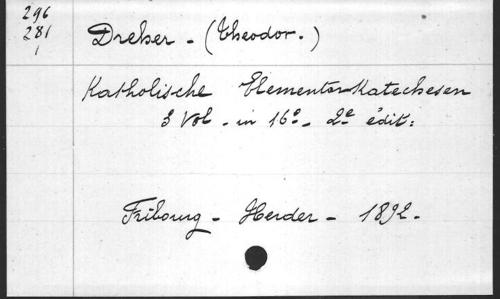 296
281
1
Dreher - (Theodor.)
Katholische Elementar Katechesen
3 Vol - in 16º - 2e édit:
Fribourg - Herder - 1892 -